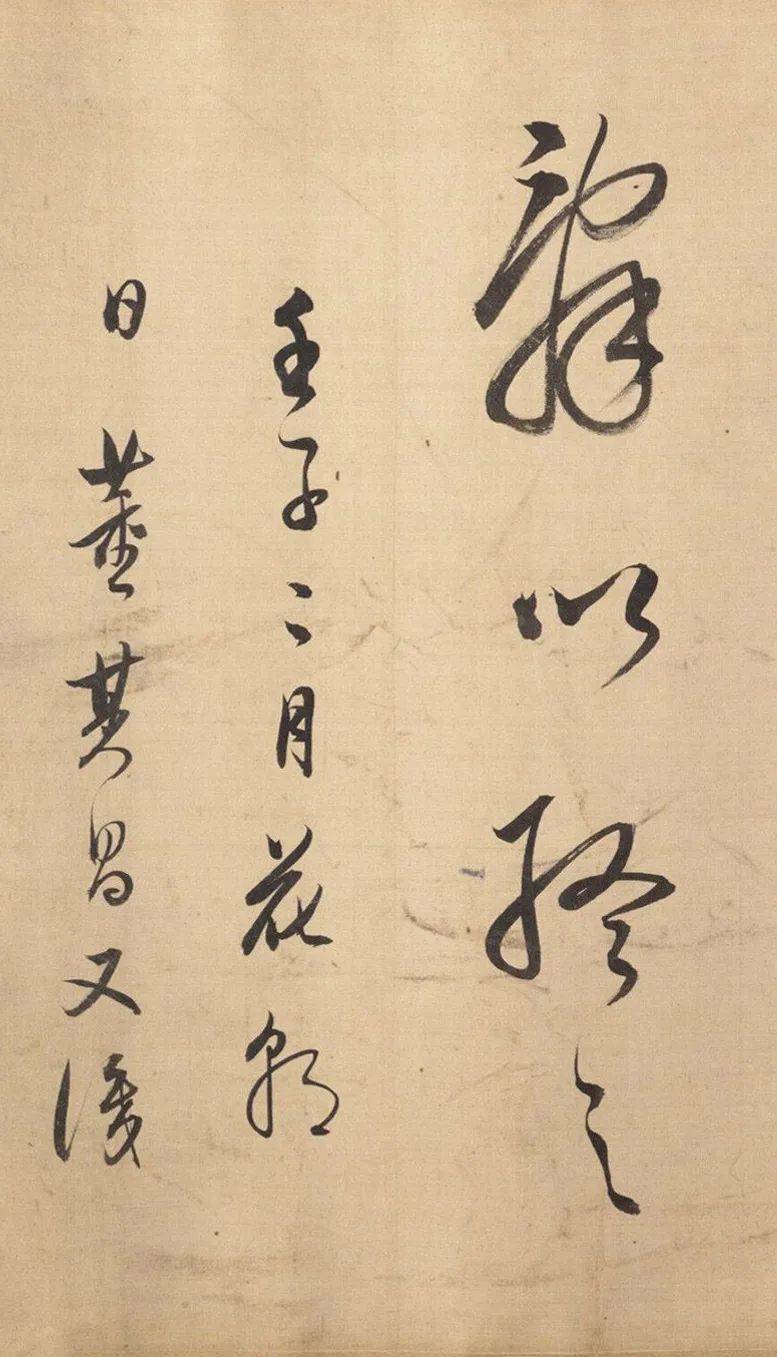 以 之
壬子二月花朝
日董其昌又識